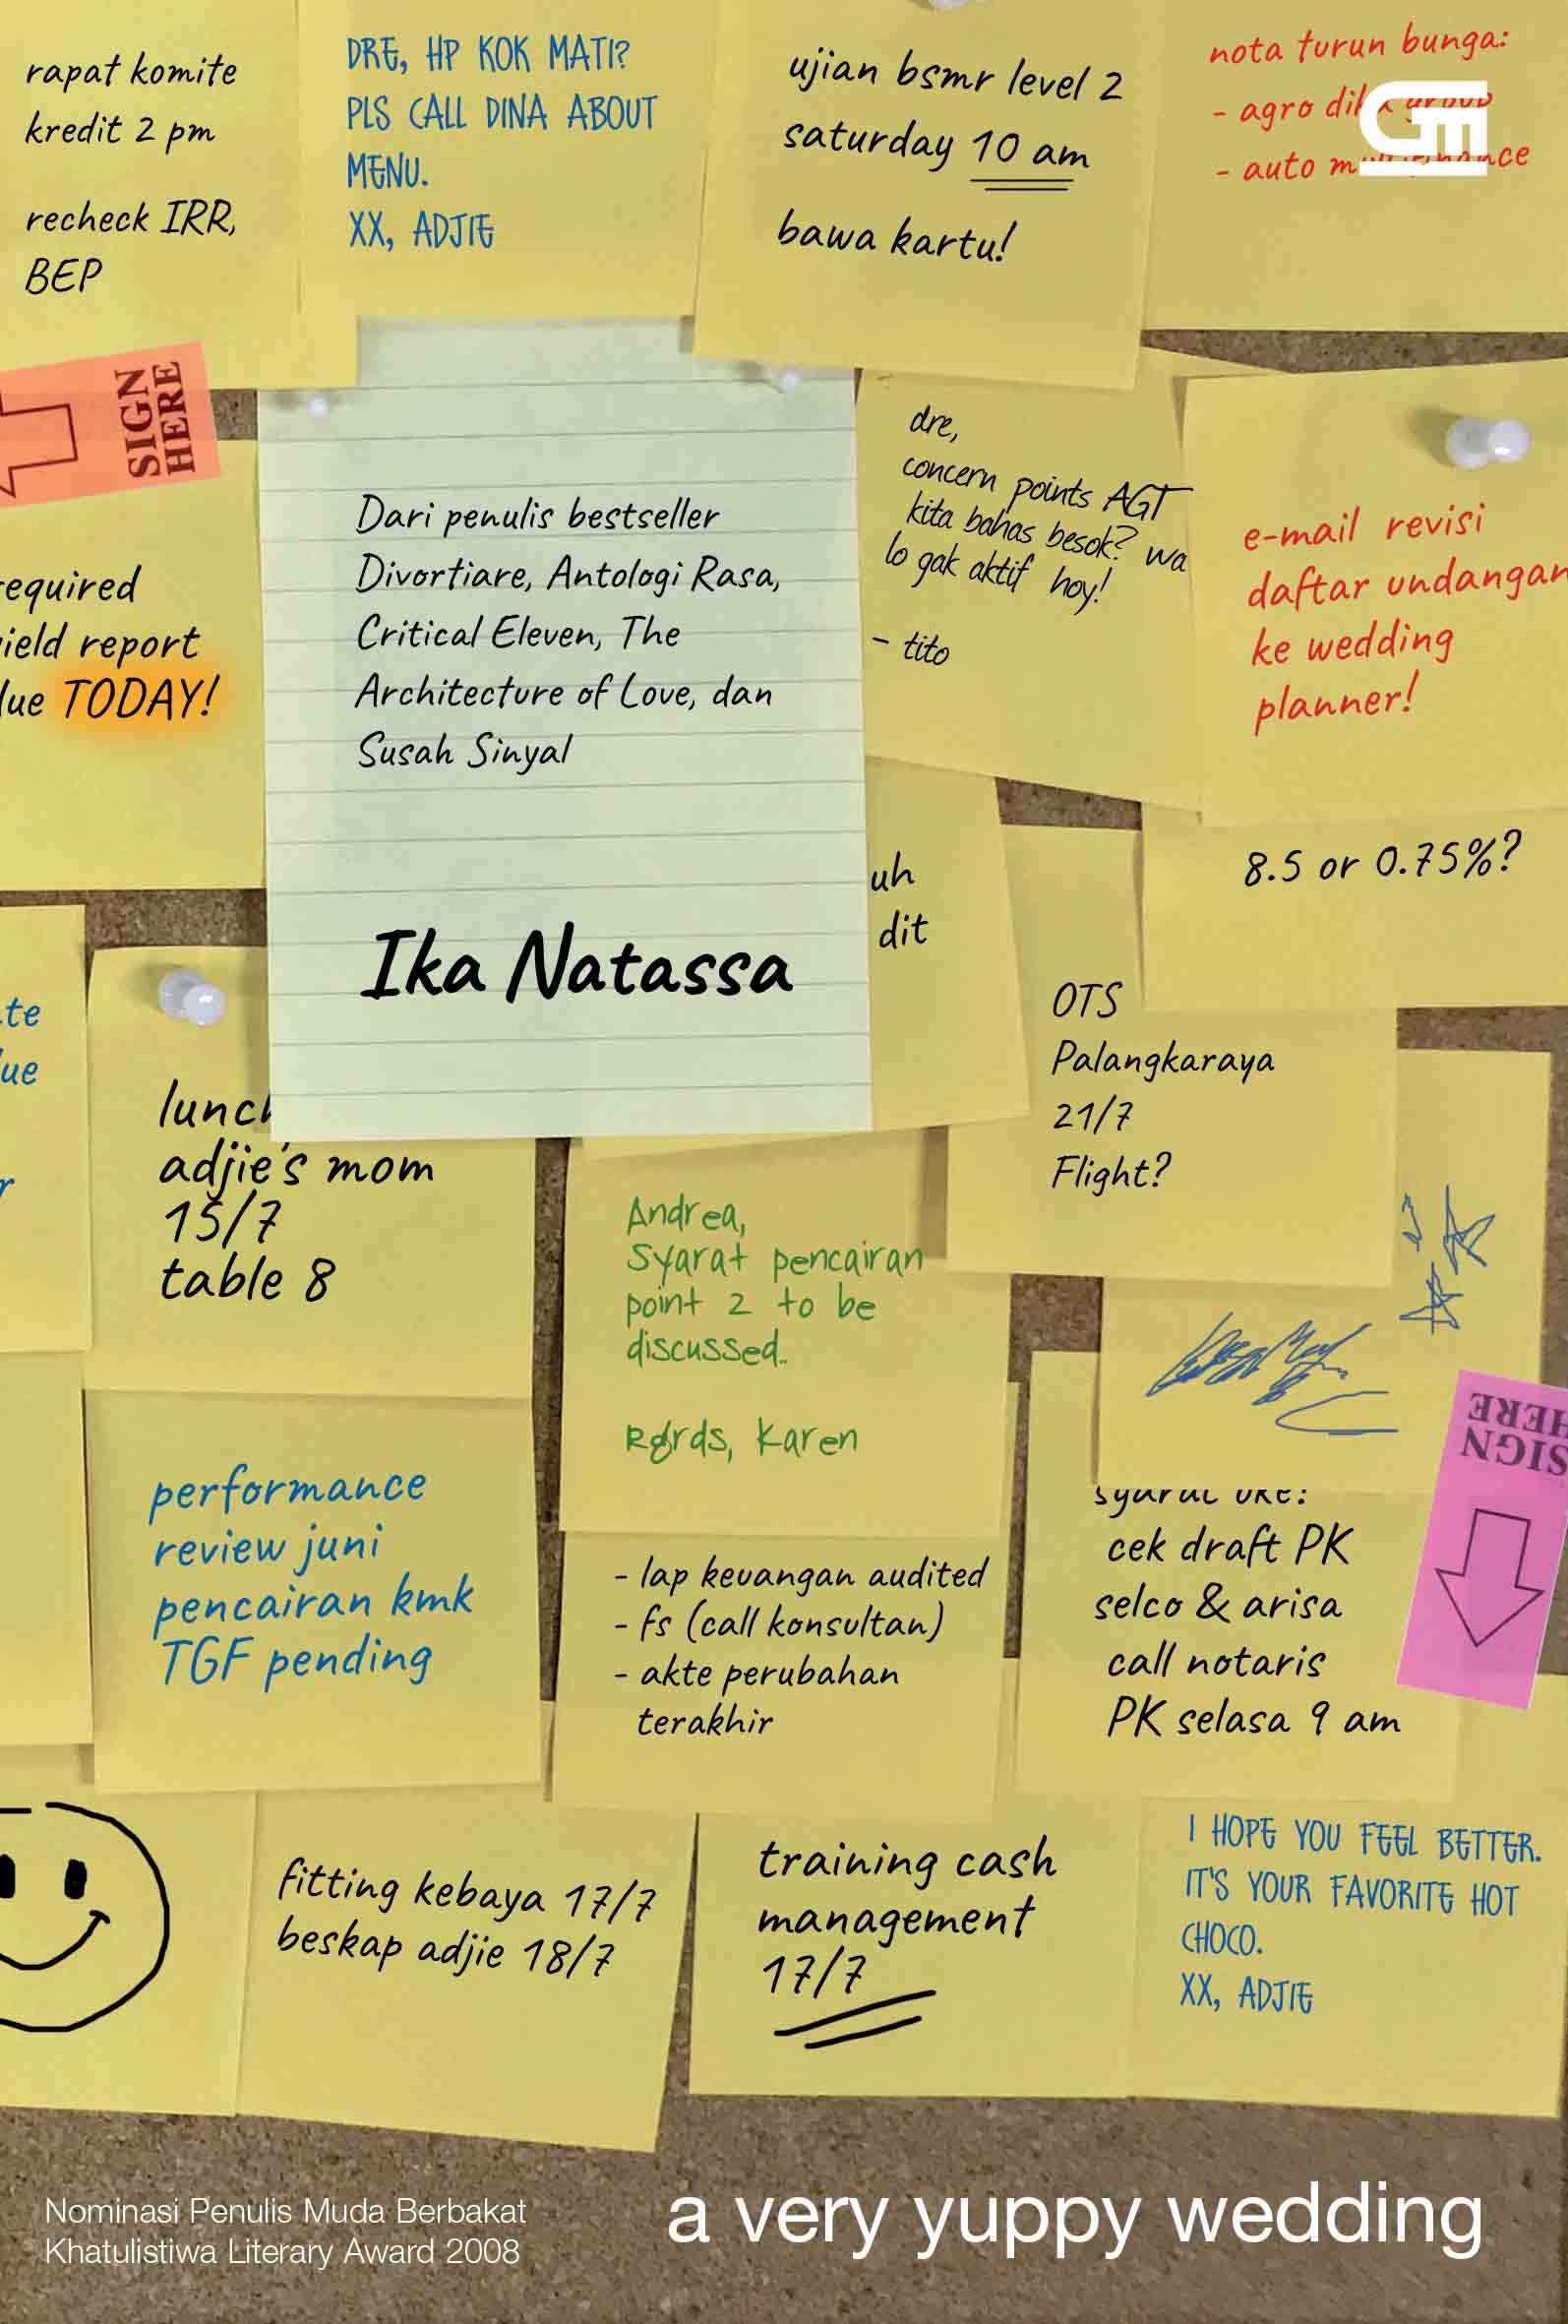 rapat komite
kredit 2 pm
recheck IRR,
BEP
DRE, HP KOK MATI?
PLS CALL DINA ABOUT
MENU.
XX, ADJIE
ujian bsmr level 2
saturday 10 am
bawa kartu!
nota turun bunga:
- agro
- auto
GM
SIGN
HERE
Dari penulis bestseller
Divortiare, Antologi Rasa,
Critical Eleven, The
Architecture of Love, dan
Susah Sinyal
Ika Natassa
dre,
concern points AGT
kita bahas besok? wa
lo gak aktif hoy!
- tito
e-mail revisi
daftar undangan
ke wedding
planner!
equired
ield report
lue TODAY!
uh
dit
8.5 or 0.75%?
OTS
Palangkaraya
21/7
Flight?
te
ue
r
lunch
adjie's mom
15/7
table 8
Andrea,
Syarat pencairan
point 2 to be
discussed..
Rgrds, Karen
SIGN
HERE
performance
review juni
pencairan kmk
TGF pending
- lap keuangan audited
- fs (call konsultan)
- akte perubahan
terakhir
cek draft PK
selco & arisa
call notaris
PK selasa 9 am
fitting kebaya 17/7
beskap adjie 18/7
training cash
management
17/7
I HOPE YOU FEEL BETTER.
IT'S YOUR FAVORITE HOT
CHOCO.
XX, ADJIE
Nominasi Penulis Muda Berbakat
Khatulistiwa Literary Award 2008
a very yuppy wedding